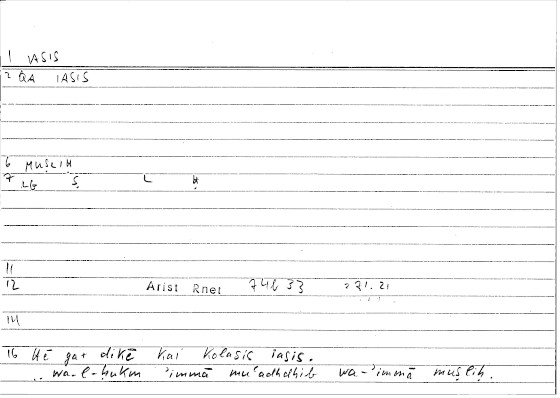 1 IASIS
2 QA IASIS
6 MUṢLIḤ
7 LG Ṣ L Ḥ
11
12 Arist Rnet 74b 33 271.21
14
16 Hē gar dikē kai kolasis iasis.
wa-l-ḥukm 'immā mu'adhdhib wa-'immā muṣliḥ.